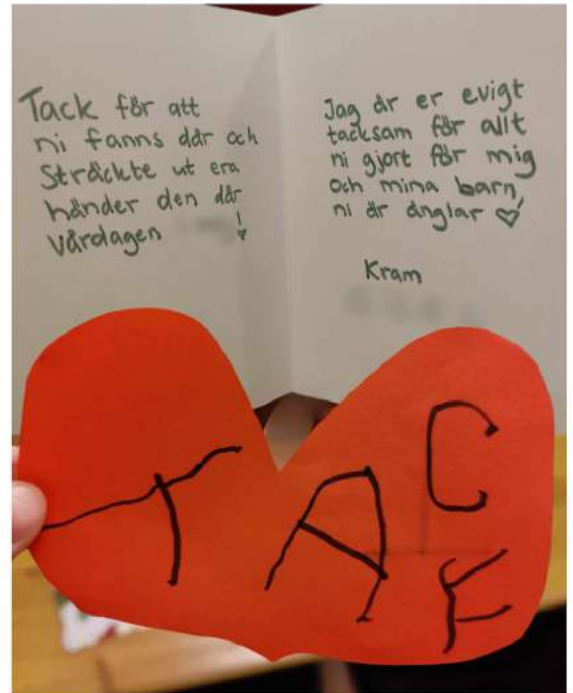 Tack för att
ni fanns där och
Sträckte ut era
händer den där
vårdagen !
Jag är er evigt
tacksam för allt
ni gjort för mig
och mina barn,
ni är änglar ♡
Kram
TACK